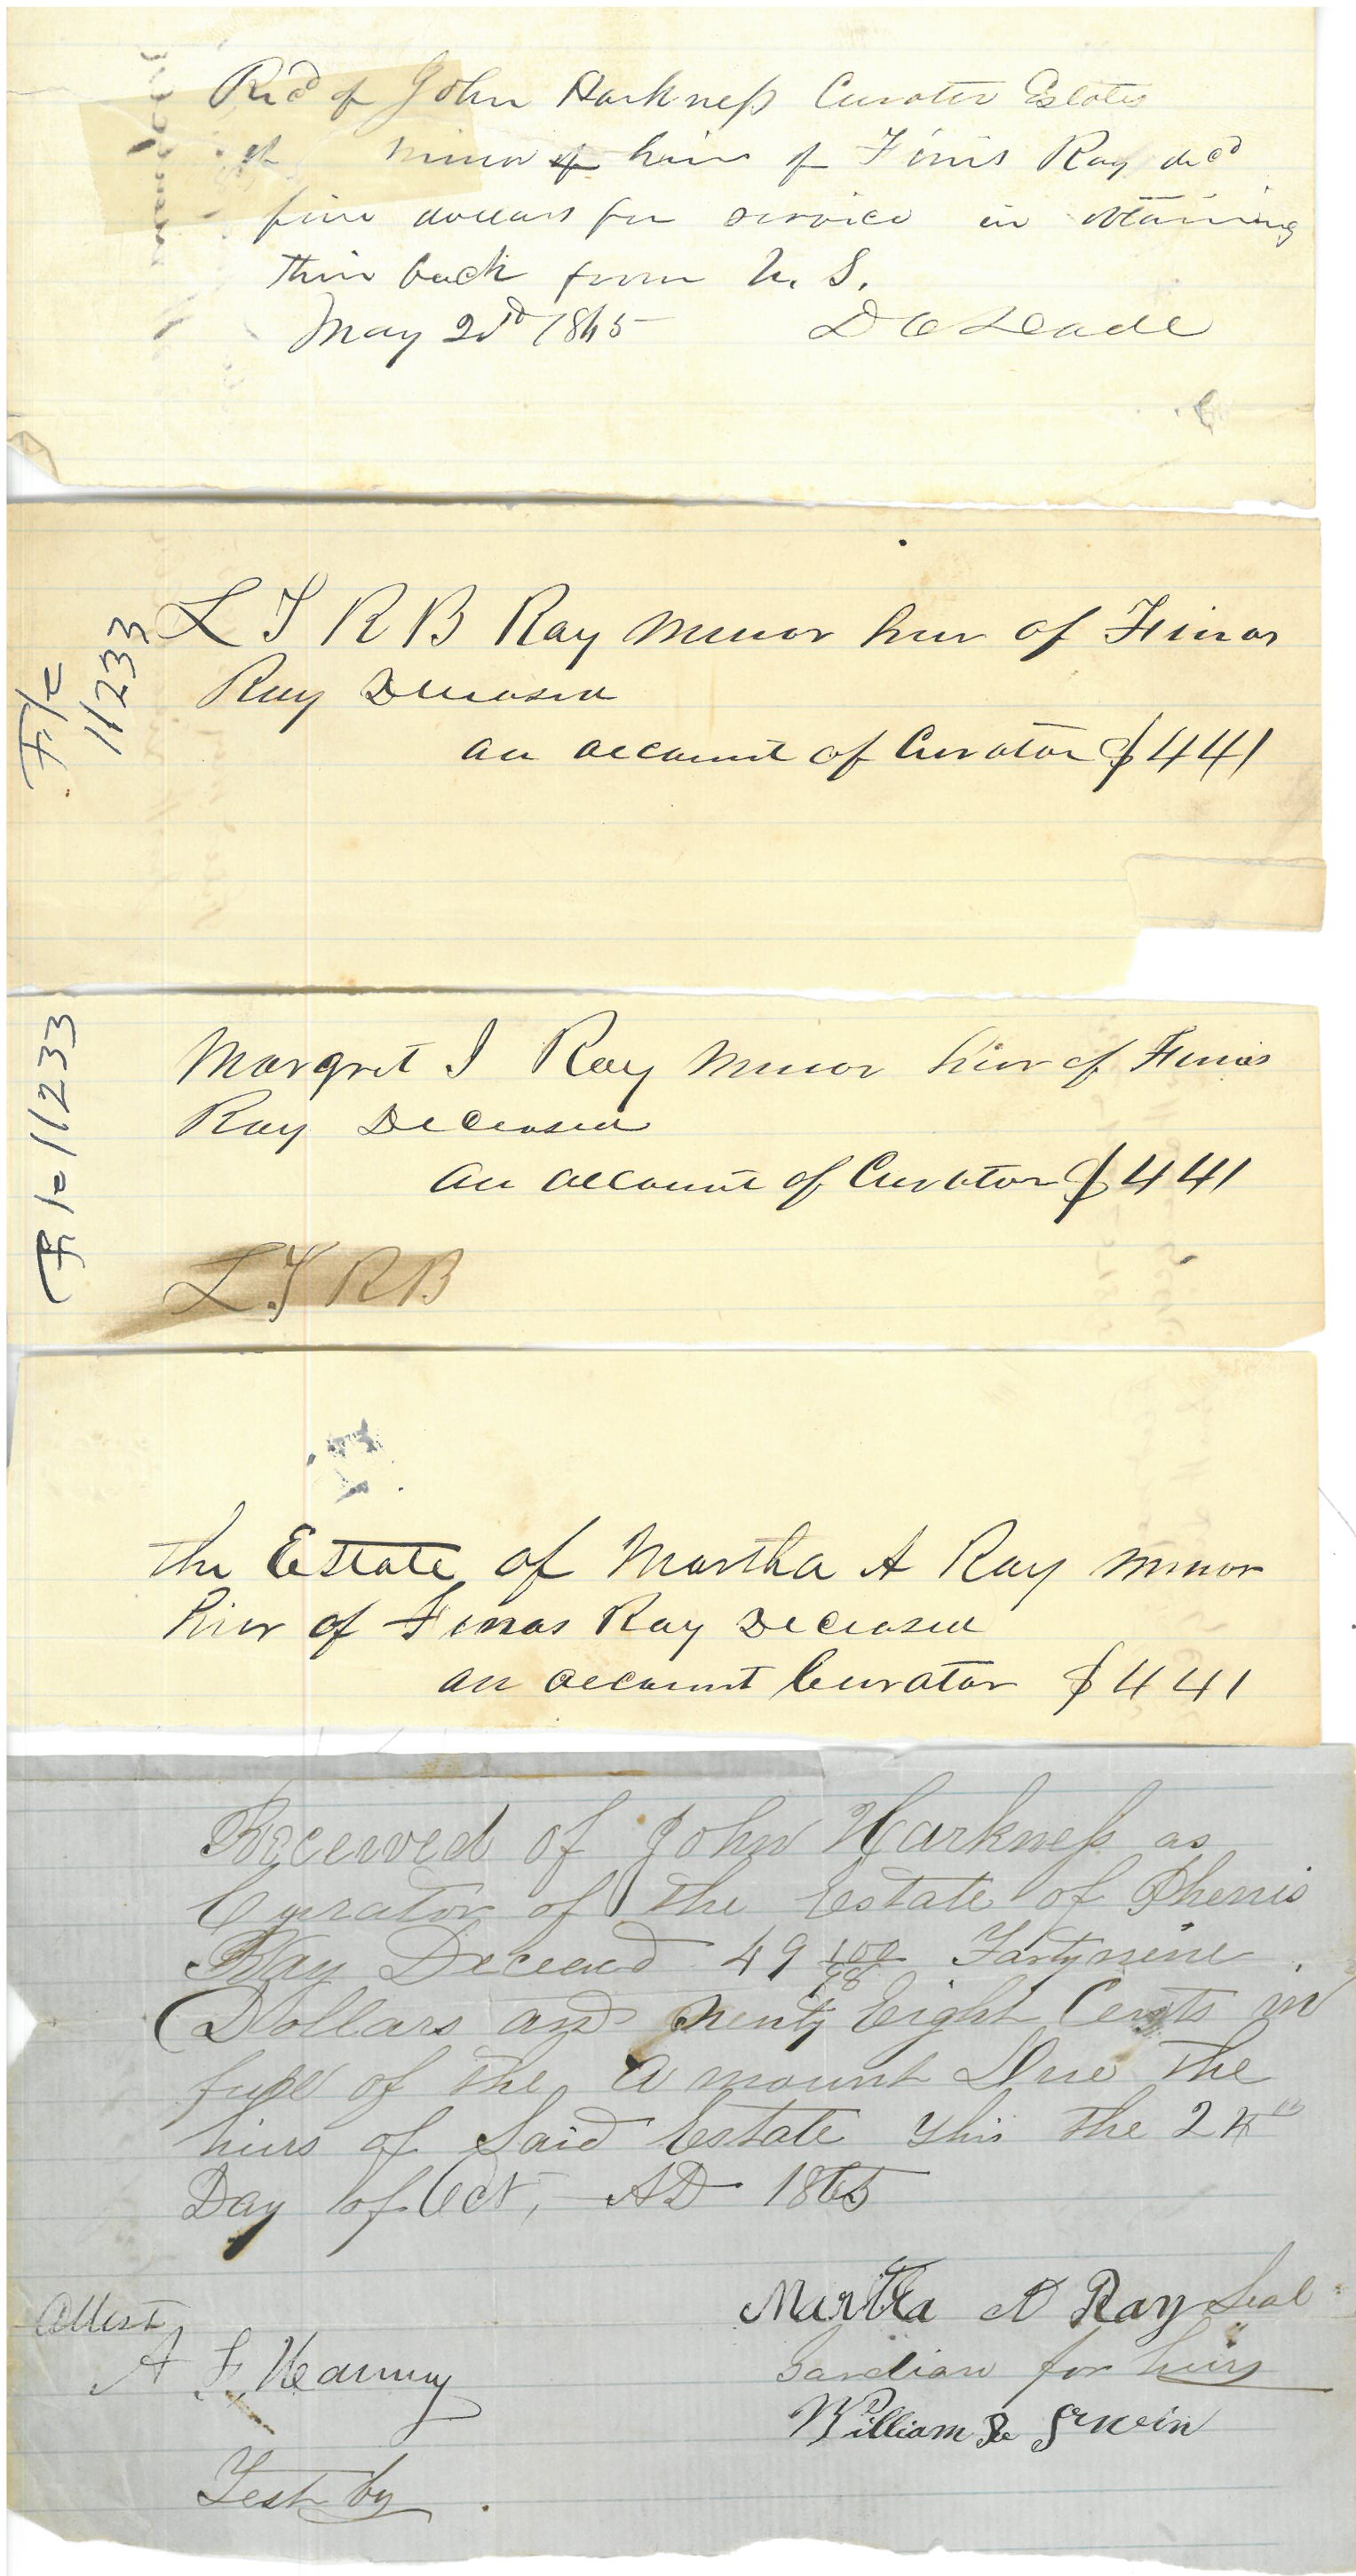 Rec'd of John Harkness Curator Estates
of minor heirs of Finis Ray dec'd
five dollars for service in obtaining
their back from U. S.
May 2nd 1865 D C Leade
F/c
11233
L T R B Ray minor heir of Finas
Ray Deceased
an account of Curator $441
F/c 11233
Margret J Ray minor heir of Finas
Ray Deceased
an account of Curator $441
L T R B
The Estate of Martha A Ray minor
hier of Finas Ray Deceased
an account Curator $441
Received of John Harkness as
Curator of the Estate of Phenis
Ray Deceasd 49 100/98 Fortynine
Dollars and Nenty Eight Cents in
full of the amount Due the
hiers of Said Estate This the 24th
Day of Oct, AD 1865
Martha A Ray Seal
Attest
A F Hanny
Gardian for heirs
William Irwin
Test by